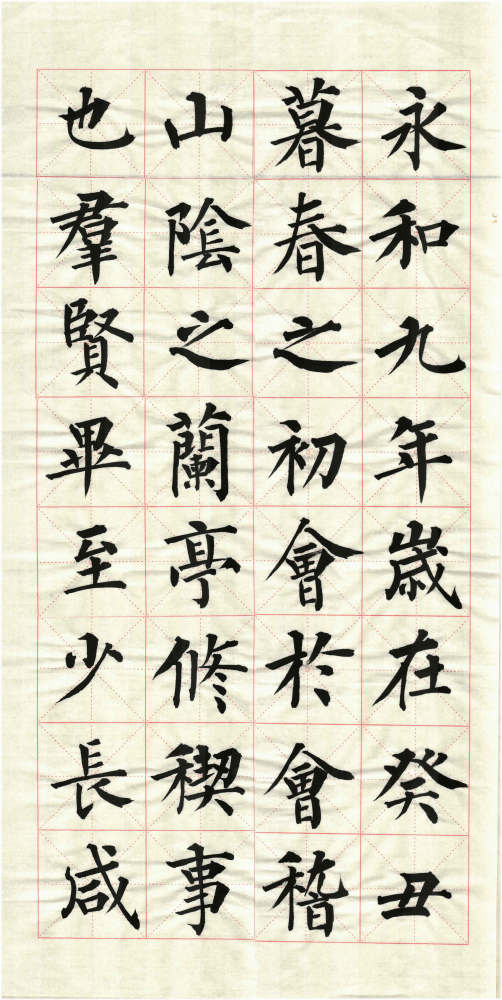 永和九年歲在癸丑
暮春之初會於會稽
山陰之蘭亭修稧事
也羣賢畢至少長咸